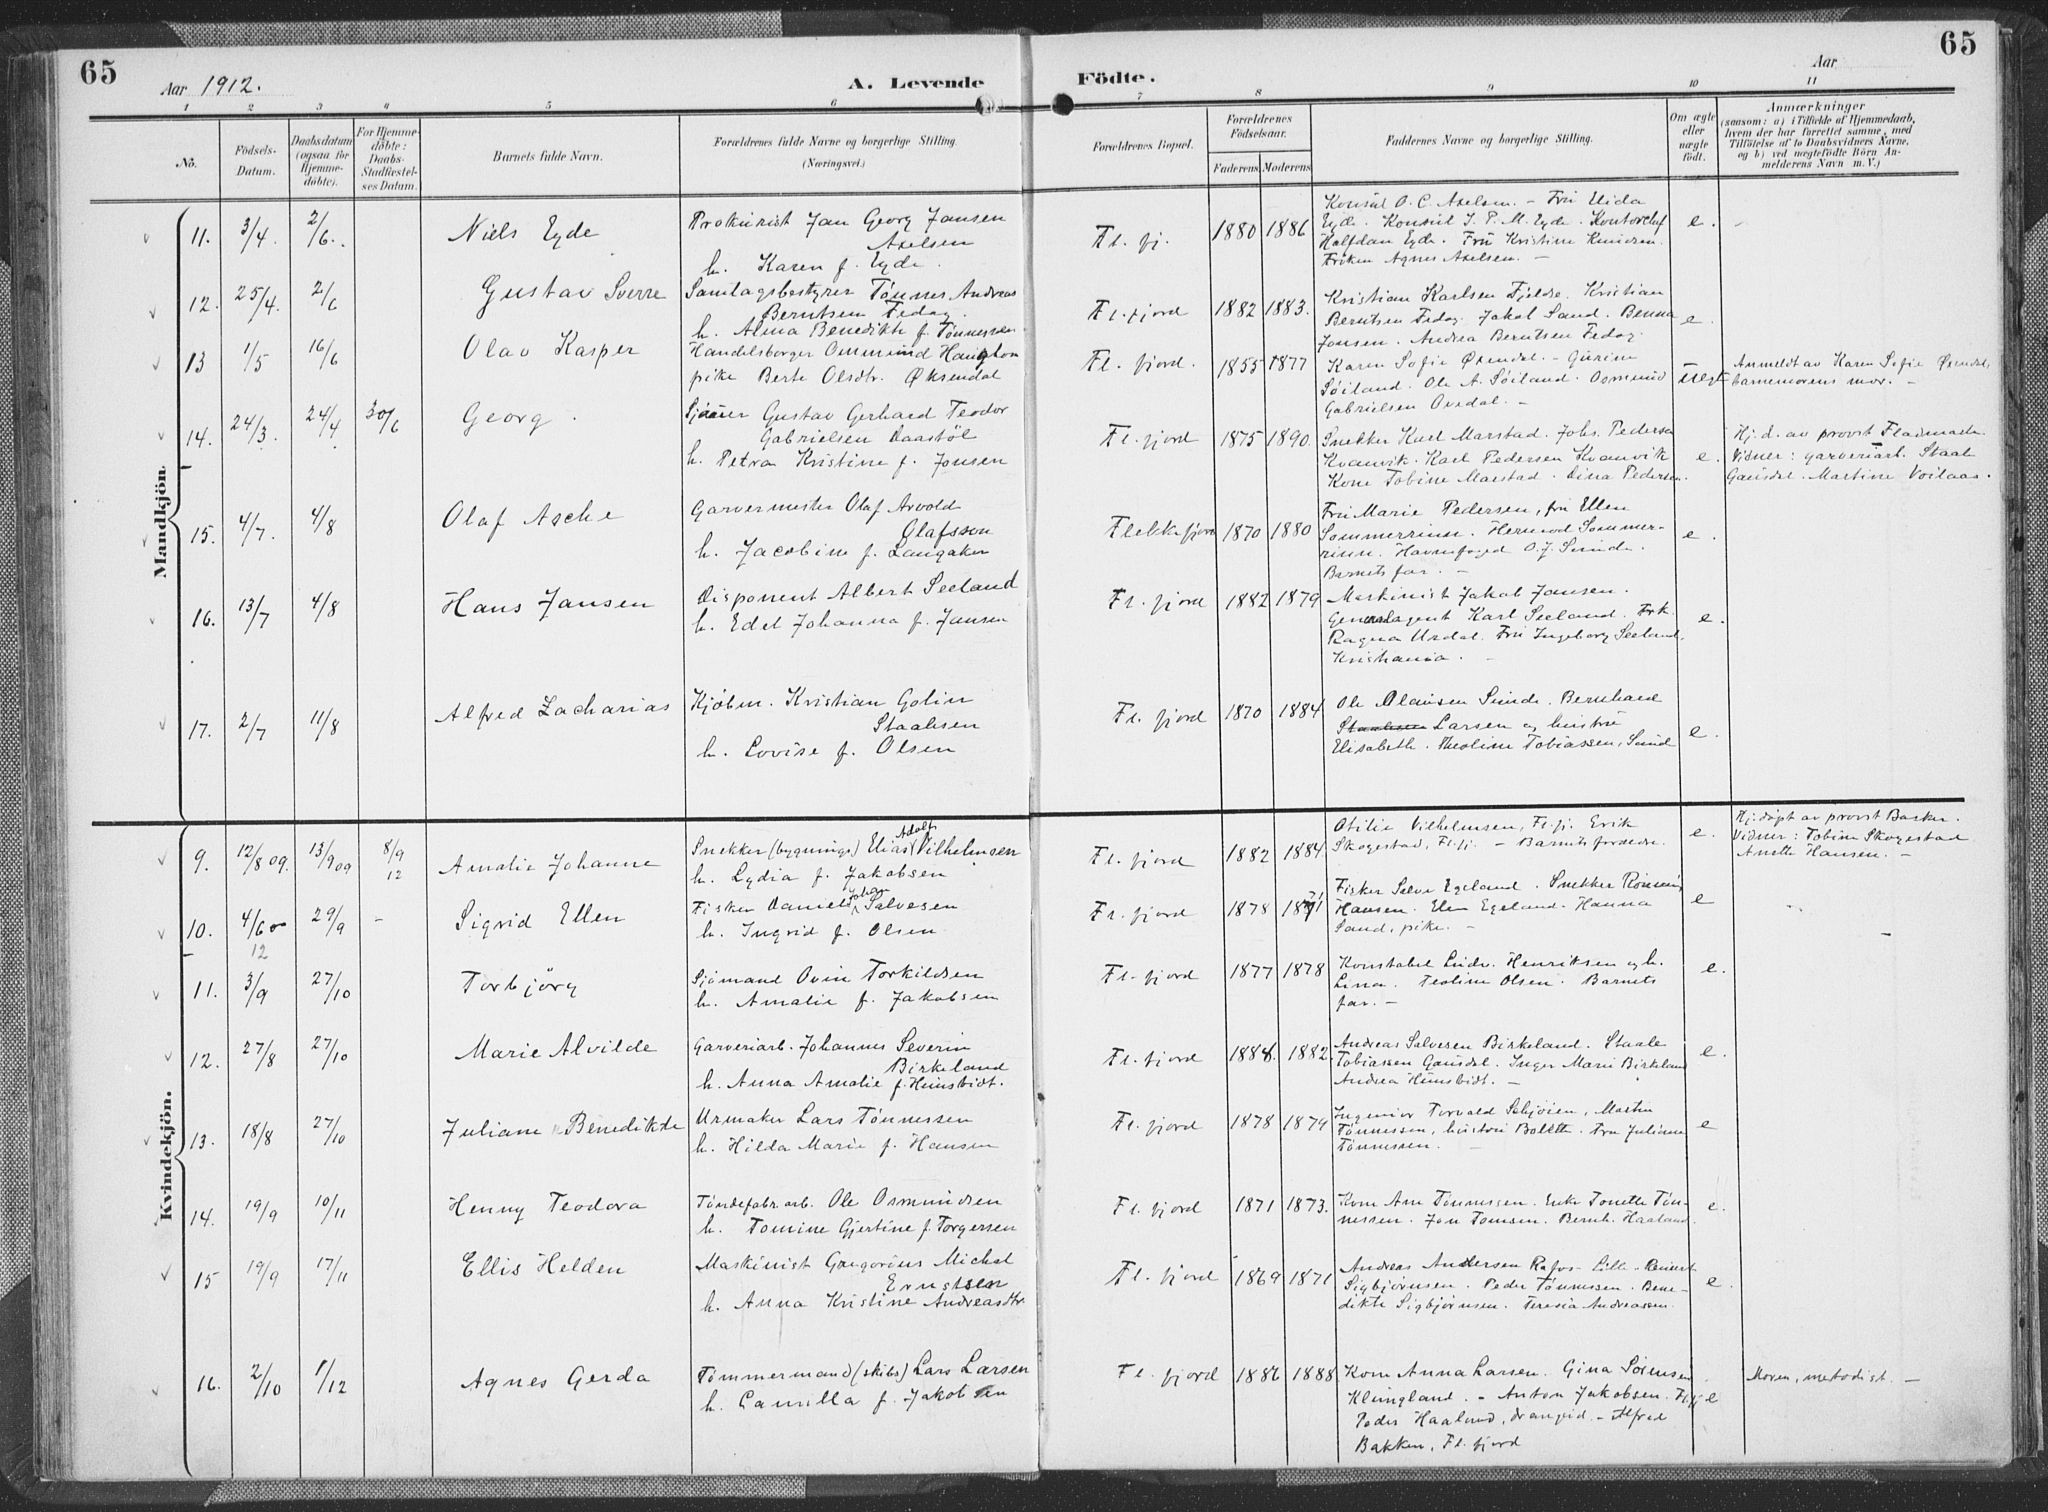 65
Aar 1912.
A. Levende
Födte.
Aar
65
1 2 3 4 5 6 7 8 9 10 11
No.
Födsels-
Datum.
Daabsdatum
(ogsaa for
Hjemme-
döbte).
For Hjemme-
döbte:
Daabs-
Stadfæstel-
ses Datum.
Barnets fulde Navn.
Forældrenes fulde Navne og borgerlige Stilling.
(Næringsvei.)
Forældrenes Bopæl.
Forældrenes
Födselsaar.
Faderens Moderens
Faddernes Navne og borgerlige Stilling.
Om ægte
eller
uægte
födt.
Anmærkninger
(saasom: a) i Tilfælde af Hjemmedaab,
hvem der har forrettet samme, med
Tilföielse af to Daabsvidners Navne,
og b) ved uægtefödte Börn An-
melderens Navn m. V.)
Mandkjön.
11. 3/4. 2/6. Niels Eyde
Prokurist Jan Georg Jansen
Axelsen
h. Karen f. Eyde.
Fl. fj. 1880 1886
Konsul O. C. Axelsen. – Fru Elida
Eyde. Konsul J. P. M. Eyde. Kontorchef
Halfdan Eyde. Fru Kristine Knudsen.
Frøken Agnes Axelsen. –
e. –
12. 25/4. 2/6 Gustav Sverre
Samlagsbestyrer Tønnes Andreas
Berntsen Fedog.
h. Alma Benedikte f. Tønnessen
Fl. fjord 1882 1883.
Kristian Karlsen Fjelde. Kristian
Berntsen Fedog. Jakob Sand. Benna
Jonsen. Andrea Berntsen Fedog
e.
13 1/5 16/6 Olav Kasper
Handelsborger Ommund
pike Berte Olsdtr. Øksendal
Fl. fjord. 1855 1877
Karen Sofie Øxendal. – Gurine
Søiland. Ole A. Søiland. Osmund
Gabrielsen Ovedal. –
uegt
Anmeldt av Karen Sofie Øxendal,
barnemorens mor. –
14. 24/3. 24/4. 30/6 Georg.
Gustav Gerhard Teodor
Gabrielsen Daastöl
h. Petra Kristine f. Jonsen
Fl. fjord 1875 1890.
Snekker Karl Marstad. Johs. Pedersen
Kvanvik. Karl Pedersen Kvanvik
Kone Tobine Marstad. Dina Pedersen.
e.
Hj. d. av provst Fladmark.
Vidner: garveriarb. Staale
Gausdal. Martine Voilaas.
15. 4/7. 4/8 Olaf Asche
Garvermester Olaf Arvold
Olafsson
h. Jacobine f. Langaker
Flekkefjord 1870 1880
Fru Marie Pedersen, fru Ellen
Sommerrinn. Hermod Sommer-
rinn. Havnefoged O. J. Sunde.
Barnets far. –
e.
16. 13/7 4/8 Hans Jansen
Disponent Albert Seeland
h. Edel Johanna f. Jansen
Fl. fjord 1882 1879
Maskinist Jakob Jansen.
Generalagent Karl Seeland. Frk.
Ragna Urdal. Fru Ingeborg Seeland,
Kristiania. –
e.
17. 2/7 11/8 Alfred Zacharias
Kjöbm. Kristian Golin
Staalesen
h. Lovise f. Olsen
Fl. fjord 1870 1884
Ole Olausen Sunde. Bernhard
Staalesen Larsen og hustru
Elisabeth. Theoline Tobiassen, Sand
e.
Kvindekjön.
9. 12/8 09. 13/9 09 8/9 12 Amalie Johanne
Snekker (bygnings) Elias Adolf Vilhelmsen
h. Lydia f. Jakobsen
Fl. fjord 1882 1884.
Otilie Vilhelmsen, Fl. fj. Erik
Skogestad, Fl. fj. – Barnets forældre.
e.
Hj. døpt av provst Barker.
Vidner: Tobine Skogestad
Anette Hansen. –
10. 4/6 12 29/9 – Sigrid Ellen
Fisker Daniel Johan Salvesen
h. Ingrid f. Olsen
Fl. fjord 1878
Fisker Salve Egeland. Snekker
Hansen. Elen Egeland. Hanna
Sand, pike. –
e
11. 3/9 27/10 Torbjörg
Sjömand Ovin Torkildsen
h. Amalie f. Jakobsen
Fl. fjord 1877 1878
Konstabel Ludv. Henriksen og h.
Lina. Teoline Olsen. Barnets
far. –
e.
12. 27/8 27/10 Marie Alvilde
Garveriarb. Johannes Severin
Birkeland
h. Anna Amalie f. Heimstvidt.
Fl. fjord 1884. 1882.
Andreas Salvesen Birkeland. Staale
Tobiassen Gausdal. Inger Marie Birkeland
Andrea Heimstvidt. –
e.
13. 18/8 27/10 Juliane Benedikte
Urmaker Lars Tønnessen
h. Hilda Marie f. Hansen
Fl. fjord 1878 1879
Ingeniør Torvald Schjöien, Martin
Tønnessen, hustru Bolette. Fru Juliane
Tønnessen.
e
14. 19/9 10/11 Henny Teodora
Töndefabr.arb. Ole Osmundsen
h. Tomine Gjertine f. Torgersen
Fl. fjord 1871 1873.
Kone Ane Tønnessen. Enke Tonette Tøn-
nessen. Jon Tomsen. Bernh. Haaland.
e.
15 19/9 17/11 Ellis Helden
Maskinist Gregorius Michal
Ernstsen
h. Anna Kristine Andreasdtr.
Fl. fjord 1869 1871
Andreas Andersen Rafos. Lill-
Sigbjørnsen. Peder Tønnessen. Bene-
dikte Sigbjørnsen. Teresia Andreassen.
e.
16. 2/10 1/12 Agnes Gerda
Tömmermand (skibs) Lars Larsen
h. Camilla f. Jakobsen
Fl. fjord 1886 1888
Kone Anna Larsen. Gina Sörensen
Klungland. – Anton Jakobsen. Fl. fj.
Peder Haaland, Drangeid. – Alfred
Bakken, Fl. fjord
e
Moren, metodist. –